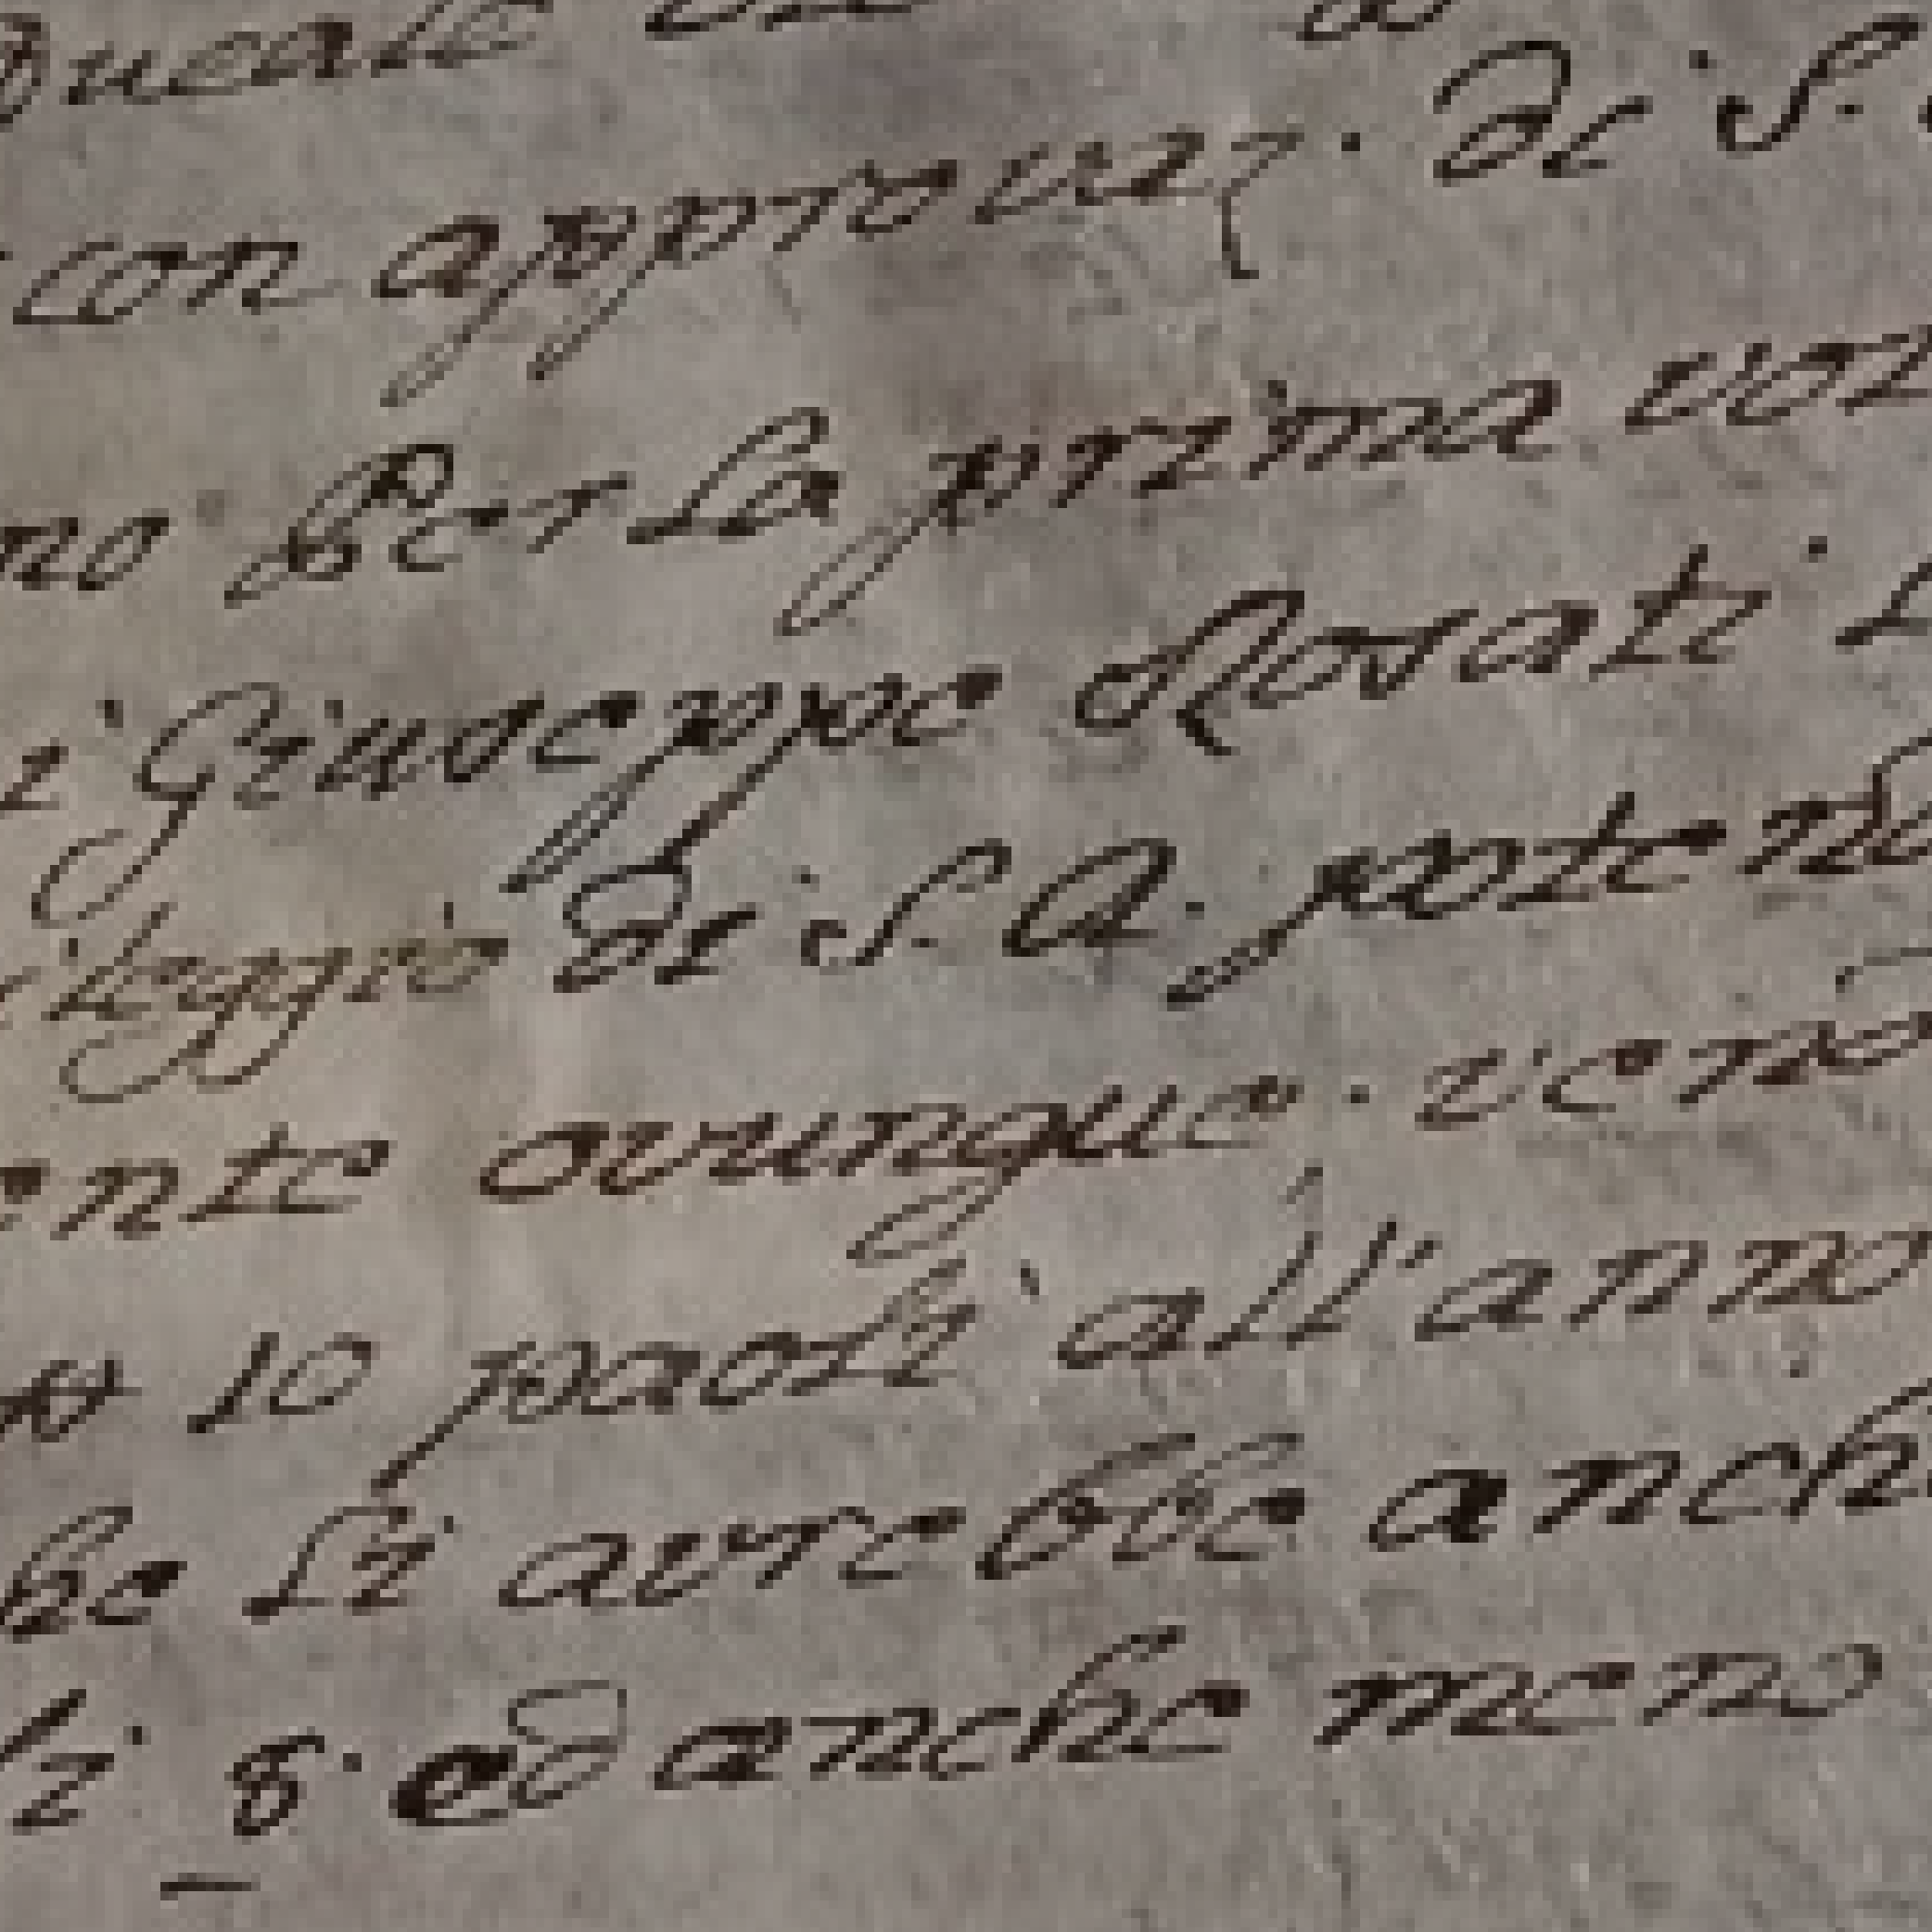 Ducale
con approuaz. di S.
no Per la prima vol
i Giuseppe Rosati
ileggio di S. A. potend
ente ovunque. veni
o 10 paoli all'anno
be li avrebbe anch
li 8. ed anche meno